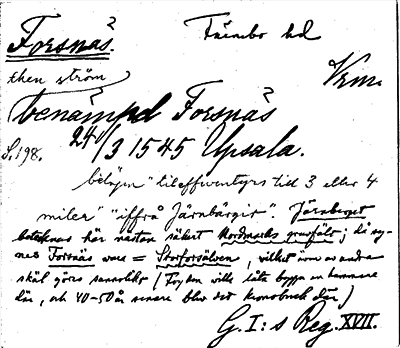 Forsnäs. Färnbo hd
then ström Vrm.
benämpd Forsnäs
S. 198. 24/3 1545 Upsala.
belägen "till effwentyrs till 3 eller 4
miler" "iffrå Järnbärgit". Järnberget
betecknas här nästan säkert Nordmarks gruvfält; då sy-
nes Forsnäs vara = Storforsälven, vilket även av andra
skäl göres sannolikt (Frykm ville låta bygga en hammare
där, och 40-50 år senare blev det kronobruk där)
G. I:s Reg. XVII.